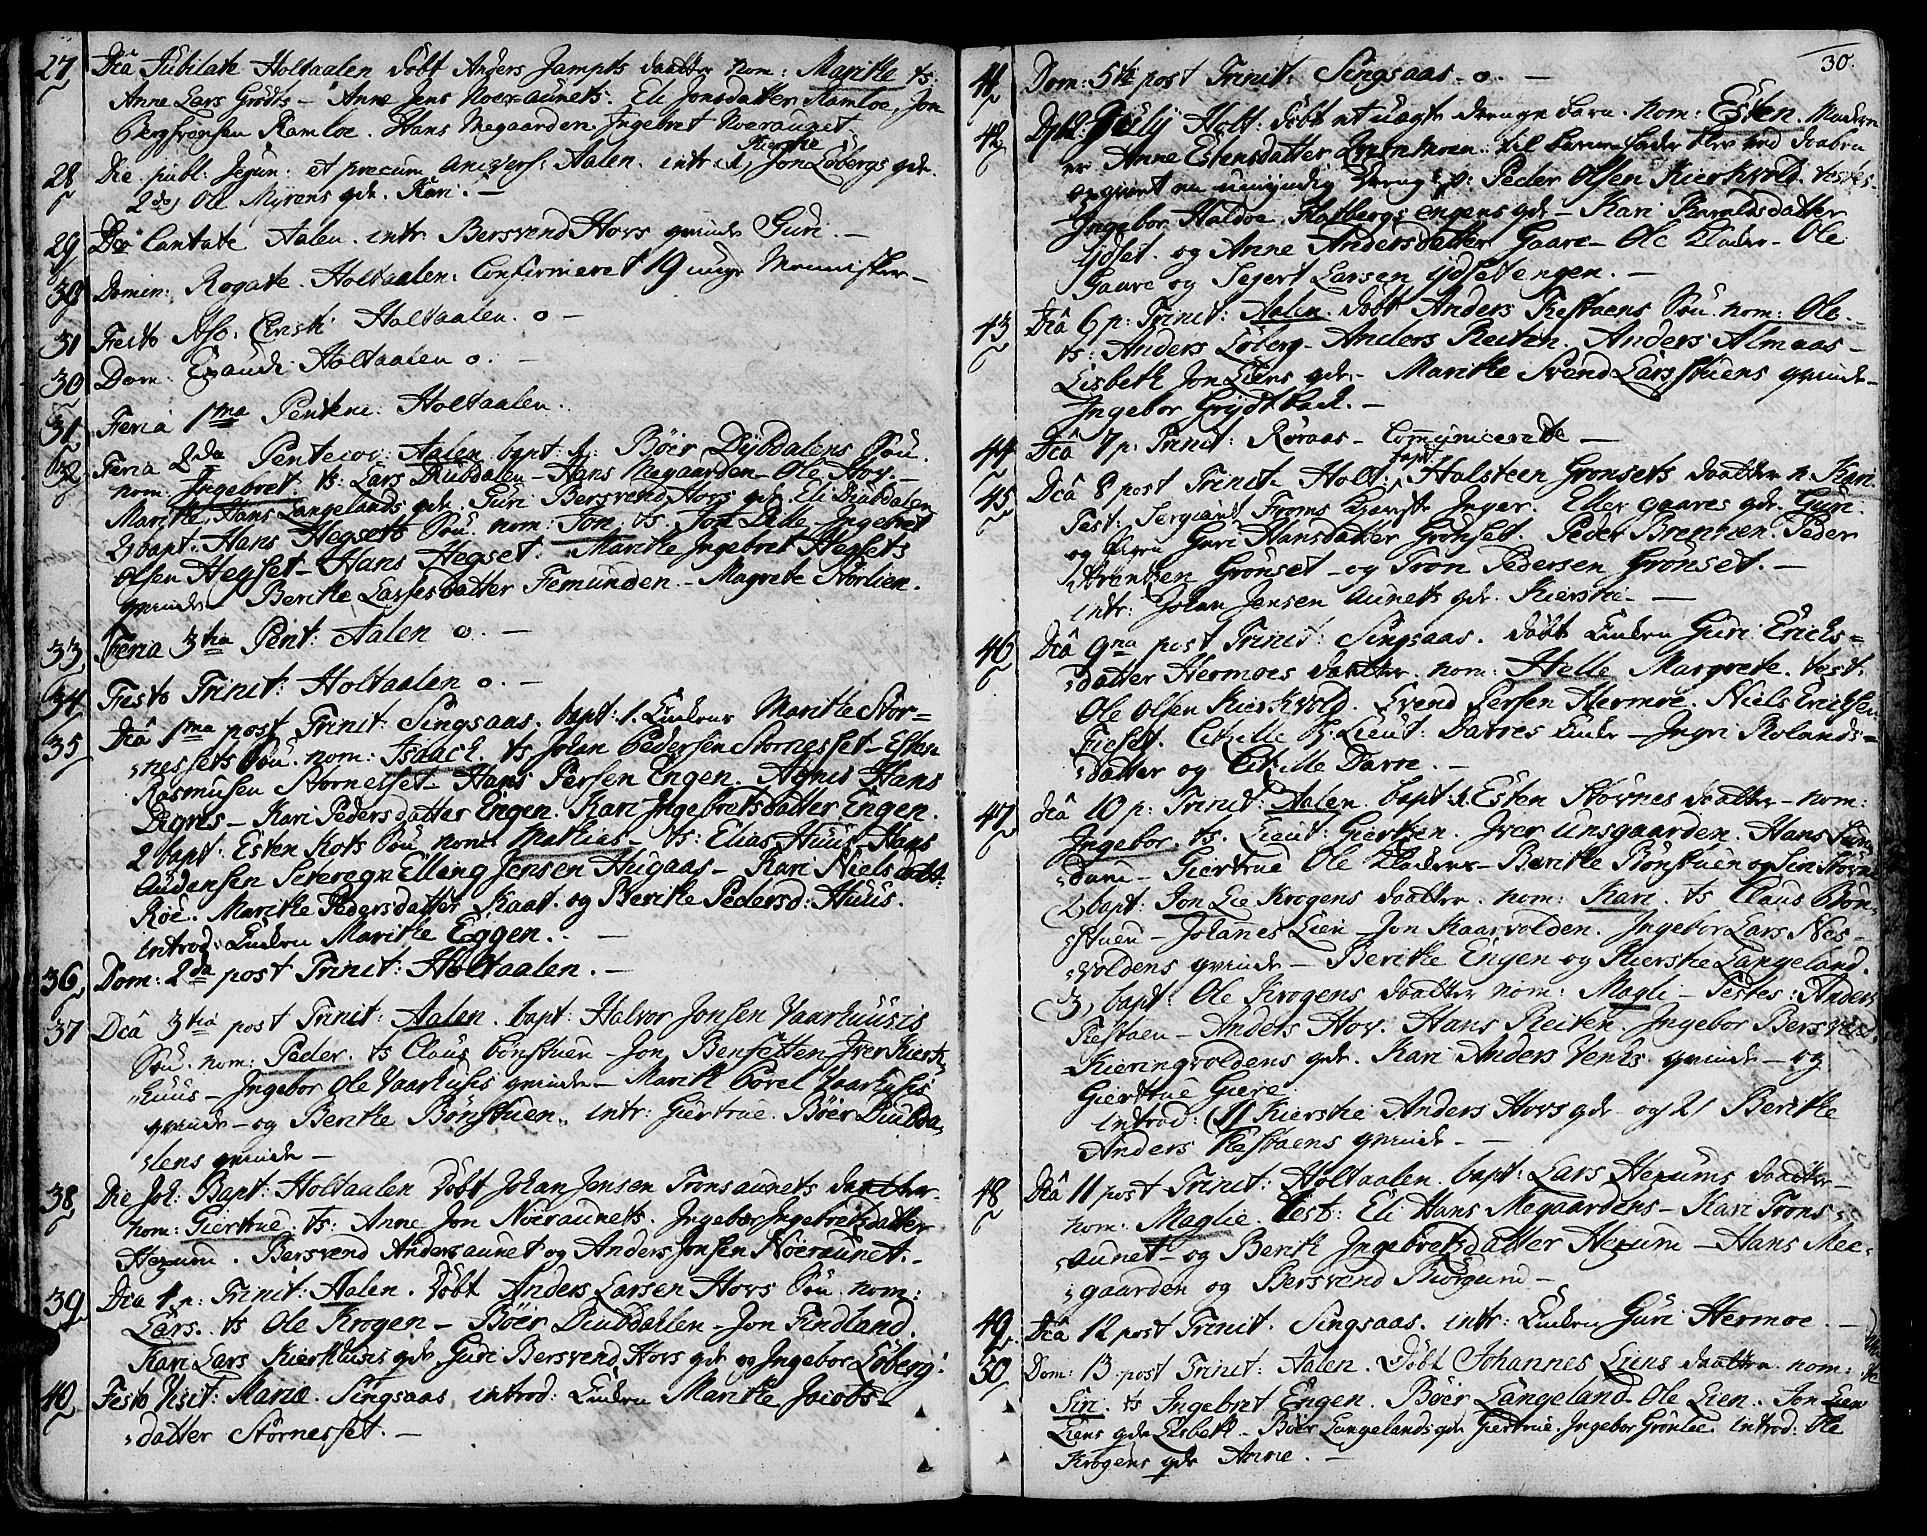 27 Diâ Jubilate Holtaalen döbt Anders Jampts daatter nom: Maritte ts:
Anne Lars Gröts – Anne Jens Noeraunets. Eli Jonsdatter Ramloe, Jon
Bergsvensen Ramloe. Hans Megaarden. Ingebret Noeraunet.
Kierstie
28 Die publ: Jejun: et precum univers: Aalen. introd: 1, Jon Löbergs qde.
2de, Ole Myrens qde. Kari. –
29 Dco Cantate Aalen. intr. Bersvend Hovs qvinde Guri. –
30 Domin: Rogate. Holtaalen. Confirmeret 19 unge Mennisker –
31 Festo Asc. Christi Holtaalen. o –
30 Dom: Exaudi Holtaalen o. –
31. Feria 1ma Pentene: Holtaalen.
32 Feria 2da Pentecos: Aalen bapt: 1. Böer Dybdalens Sön.
nom: Ingebret ts: Lars Diubdalen – Hans Megaarden – Ole Hov. –
Maritte Hans Langelands qde. Guri Bersvend Hovs qde Eli Diubdalen
2, bapt. Hans Hegsets Sön. nom: Jon. ts. Jon Lille Ingebret
Olsen Hegset – Hans Hegset. Maritte Ingebret Hegsets
qvinde Beritte Lassesdatter Femunden. – Magrete Störlien.
33 Feria 3tia Pent: Aalen o. –
34 Festo Trinit: Holtaalen o. –
35 Diâ 1ma post Trinit. Singsaas. bapt: 1. Enken Maritte Stor=
nessets Sön. nom: Isaack. ts Johan Pedersen Stornesset – Esten
Rasmusen Stornesset – Hans Persen Engen. Agnis Hans
Digris – Kari Pedersdatter Engen. Kari Ingebretsdatter Engen.
2 bapt: Esten Kots Sön nom: Mathias – ts: Elias Huus – Hans
Audensen Elling Jensen Haugaas – Kari Nielsdatt:
Röe. Maritte Pedersdatter Kaat. og Beritte Pedersd: Huus.
Introd: Enken Maritte Eggen. –
36 Dom: 2da post Trinit: Holtaalen. –
37 Diâ 3tia post Trinit: Aalen. bapt: Halvor Jonsen Vaarhuusis
Sön. nom: Peder. ts Claus Bönstuen – Jon Bensetten Iver Kierk=
huus – Ingebor Ole Vaarhusis qvinde – Marit Povel Vaarhusis
qvinde – og Beritte Bönstuen. intr: Giertrue. Böer Diubda=
lens qvinde –
38 Die Joh: Bapt: Holtaalen Döbt Johan Jensen Tronsaunets daatter.
nom: Giertrue. ts: Anne Jon Nöeraunets. Ingebor Ingebretsdatter
Hexum. Bersvend Andersaunet og Anders Jonsen Nöeraunet. –
39 Diâ 4 p: Trinit: Aalen. Döbt Anders Larsen Hovs Sön. nom:
Lars. ts Ole Krogen – Böer Diubdalen – Jon Findland.
Kari Lars Kierkhusis qde Guri Bersvend Hovs qde og Ingebor Löberg.
40 Festo Visit: Mariæ. Singsaas introd: Enken Maritte Jacobs=
datter Stornesset. –
30.
41 Dom: 5te post Trinit: Singsaas – o. –
42 D. 12. Julij Holt: döbt et uægte drenge barn. Nom: Esten. Modern
er Anne Estensdatter til barne fader blev ved daaben
angivet en umyndig dreng: Peder Olsen Kierkvold. testes.
Ingebor Haldoe Flatbergs engens qde – Kari Haraldsdatter
Ydset. og Anne Andersdatter Gaare – Ole Kluder – Ole
Gaare og Sejert Larsen Ydsetengen. –
43 Diâ 6 p: Trinit: Aalen. Döbt Anders Refstaens Sön. nom: Ole. –
ts: Anders Löberg – Anders Reiten. Anders Almaas –
Lisbeth Jon Liens qde – Maritte Svend Larsstuens qvinde –
Ingebor Grydtbach. –
44 Diâ 7 p: Trinit: Röraas – Comunicerede –
bapt
45. Diâ 8 post Trinit – Holt: Holsteen Grönsets daatter n. Kari
Test: Sergiant Froms Kierste Inger. Eller Gaares qde. Guri.
og Pigen Guri Hansdatter Grönset. Peder Brentzen. Peder
Arentzen Grönset – og Tron Pedersen Grönset. –
intr: Johan Jensen Aunets qde. Kierstie – –
46 Diâ 9na post Trinit: Singsaas. döbt Enken Guri Erichs=
datter Hermoes daatter. nom: Helle Margrete. test:
Ole Olsen Kierkvold. Svend Persen Hermoe. Niels Erichsen
Fieset. Lieut: Darres Enke – Ingri Rolands=
datter og Darre. –
47 diâ 10 p: Trinit: Aalen. bapt: 1. Esten Stövnes daatter – nom:
Ingebor. ts. Lieut: Giertzen. Iver Unsgaarden. Hans Lun=
dam – Giertrue Ole Kluders – Beritte Bönstuen og Siri Stövne
2, bapt: Jon Lie Krogens daatter. nom: Kari. ts Claus Bön=
stuen – Johanes Lien – Jon Kaarvolden. Ingebor Lars Nes=
voldens qvinde – Beritte Engen og Kierstie Langeland.
3, bapt: Ole Krogens daatter nom: Magli – Testes: Anders
Refstaen – Anders Hov. Hans Reiten. Ingebor Bersvend
Kieringvoldens qde. Kari Anders Vends qvinde – og
Giertrue Giere.
introd: 1 Kierstie Anders Hovs qde og 2 Beritte
Anders Refstaens qvinde. –
48 Diâ 11 post Trinit: Holtaalen. bapt: Lars Hexums daatter –
nom: Maglie. Test: Eli Hans Megaardens – Kari Trons=
aunet – og Berit Ingebretsdatter Hexum – Hans Mee=
gaarden og Bersvend Biörgum –
49. Diâ 12 post Trinit. Singsaas. intr: Enken Guri Hermoe. –
50 Dom: 13 post Trinit: Aalen. Döbt Johannes Liens daatter nom:
Siri. ts Ingebrit Engen. Böer Langeland – Ole Lien. Jon Lien
Liens qde Lisbeth – Böer Langelands qde Giertrue. Ingebor Grönlie introd: Ole
Krogens qde Anne. –